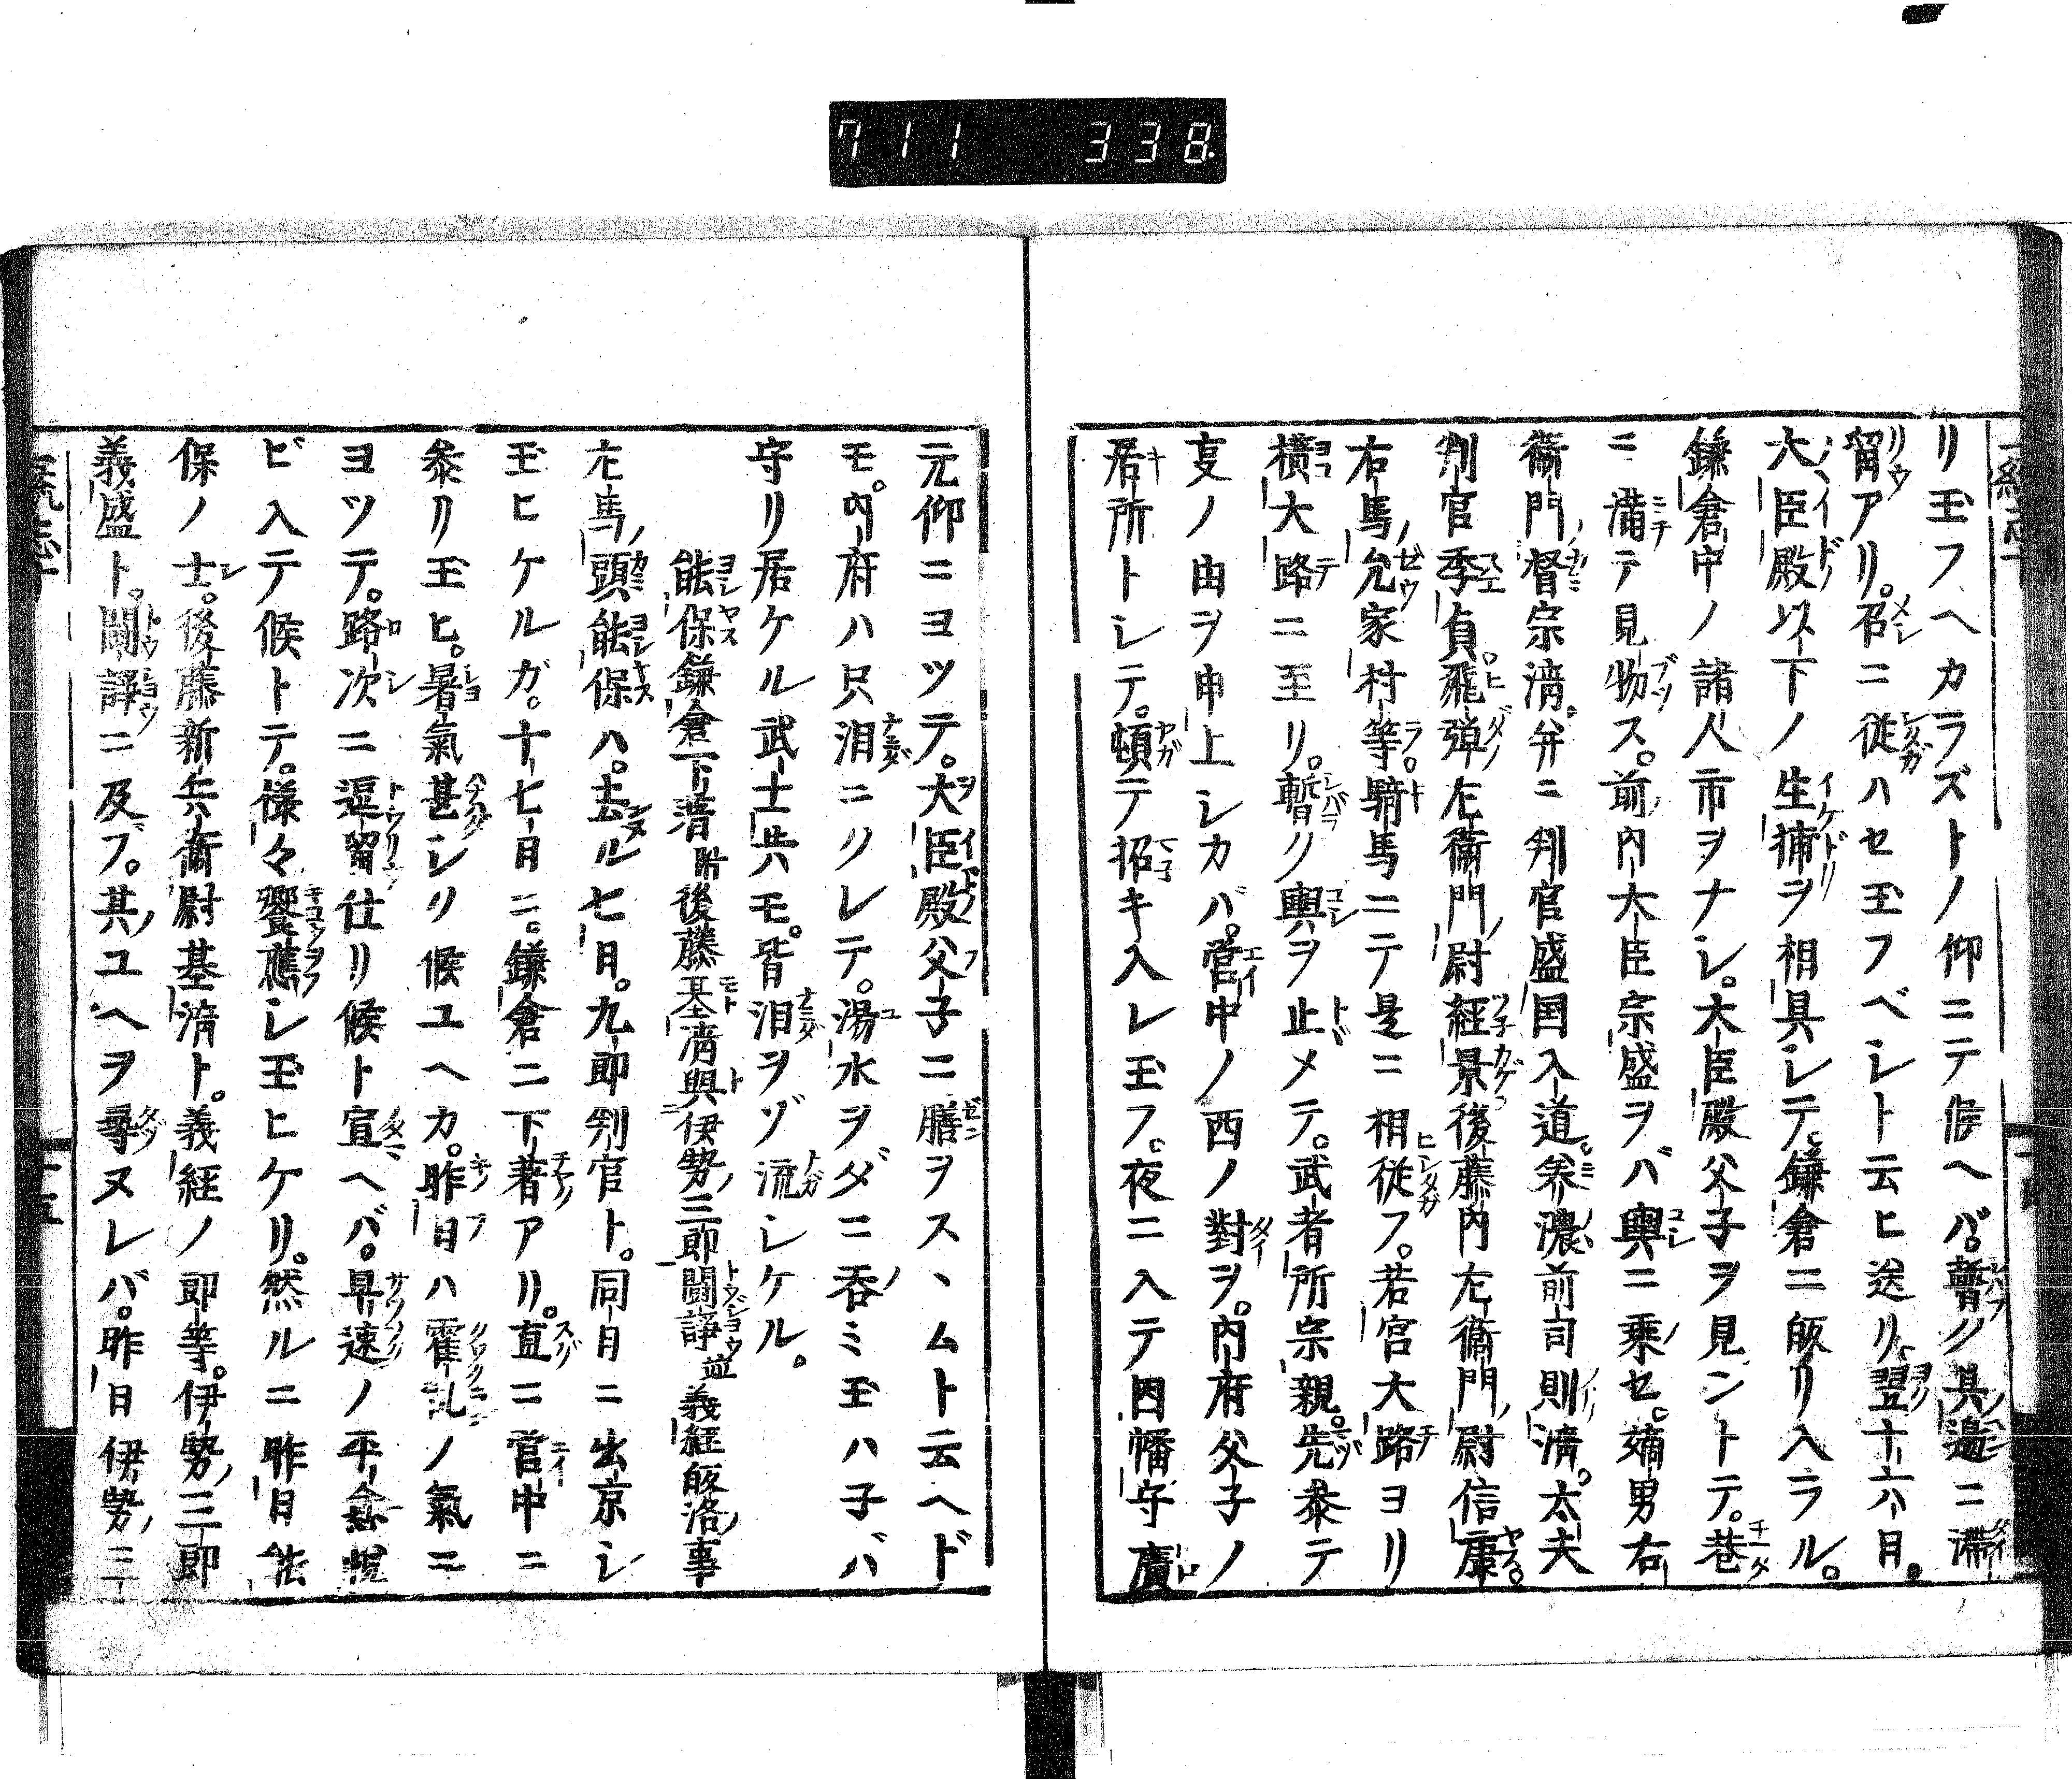 711 338
リ玉フヘカラズトノ仰ニテ候ヘバ。暫ク其邉ニ滞
留アリ。召ニ従ハセ玉フベシト云ヒ送リ、翌十六日。
大臣殿以下ノ生捕ヲ相具シテ。鎌倉ニ皈リ入ラル。
鎌倉中ノ諸人市ヲナシ。大臣殿父子ヲ見ントテ。巷
ニ満テ見物ス。前内大臣宗盛ヲバ輿ニ乗セ。嫡男右
衛門督宗清。并ニ判官盛国入道。美濃前司則清。太夫
判官季貞。飛弾左衛門尉経景後藤内左衛門尉信康。
右馬允家村等。騎馬ニテ是ニ相従フ。若宮大路ヨリ
横大路ニ至リ。暫ク輿ヲ止メテ。武者所宗親。先叅テ
叓ノ由ヲ申上シカバ。営中ノ西ノ對ヲ。内府父子ノ
居所トシテ。頓テ招キ入レ玉フ。夜ニ入テ因幡守廣
元仰ニヨツテ。大臣殿父子ニ膳ヲスヽムト云ヘド
モ。内府ハ只泪ニクレテ。湯水ヲダニ呑ミ玉ハ子バ
守リ居ケル武士共モ。皆泪ヲゾ流シケル。
能保鎌倉下著附後藤基清與伊勢三郎闘諍並義経皈洛事
左馬頭能保ハ。去ル七日。九郎判官ト。同日ニ出京シ
玉ヒケルガ。十七日ニ。鎌倉ニ下著アリ。直ニ営中ニ
叅リ玉ヒ。暑氣甚シク候ユヘカ。昨日ハ霍乱ノ氣ニ
ヨツテ。路次ニ逗留仕リ候ト宣ヘバ。早速ノ平愈悦
ビ入テ候トテ。様々饗應シ玉ヒケリ。然ルニ昨日能
保ノ士。後藤新兵衛尉基清ト。義経ノ郎等。伊勢三郎
義盛ト。闘諍ニ及フ。其ユヘヲ尋ヌレバ。昨日伊勢三